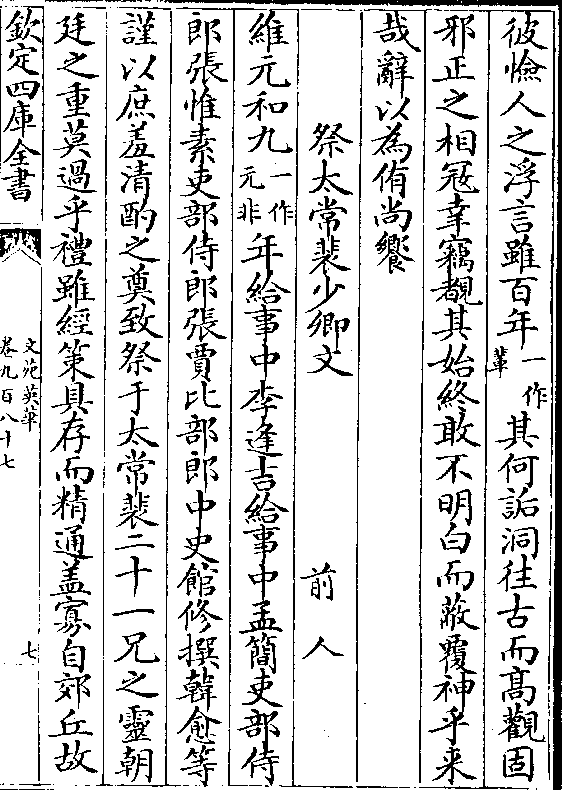 彼憸人之浮言雖百年一作輩其何詬洞往古而髙觀固
邪正之相冦幸竊覩其始終敢不明白而蔽覆神乎来
哉辭以為侑尚饗
祭太常裴少卿文 前人
維元和九一作元非年給事中李逢吉給事中孟簡吏部侍
郎張惟素吏部侍郎張賈比部郎中史館修撰韓愈等
謹以庶羞清酌之奠致祭于太常裴二十一兄之靈朝
廷之重莫過乎禮雖經策具存而精通盖寡自郊丘故
欽定四庫全書
文苑英華
卷九百八十七
七